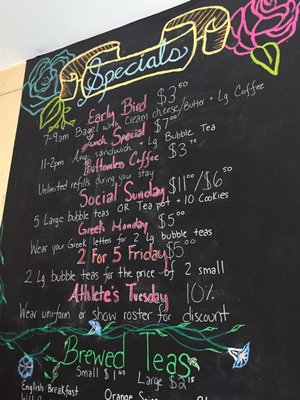 Specials
Early Bird $3.50
7-9am Bagel with cream cheese/Butter + Lg Coffee
Lunch Special $7.00
11-2pm Any sandwich + Lg Bubble Tea
Bottomless Coffee $3.75
Unlimited refills during your stay
Social Sunday $11.00/$6.50
5 Large bubble teas OR Tea pot + 10 Cookies
Greek Monday $5.00
Wear your Greek letters for 2 Lg bubble teas
2 For 5 Friday $5.00
2 Lg bubble teas for the price of 2 small
Athlete's Tuesday 10%
Wear uniform or show roster for discount
Brewed Teas
Small $1.65 Large $2.15
English Breakfast
Orange